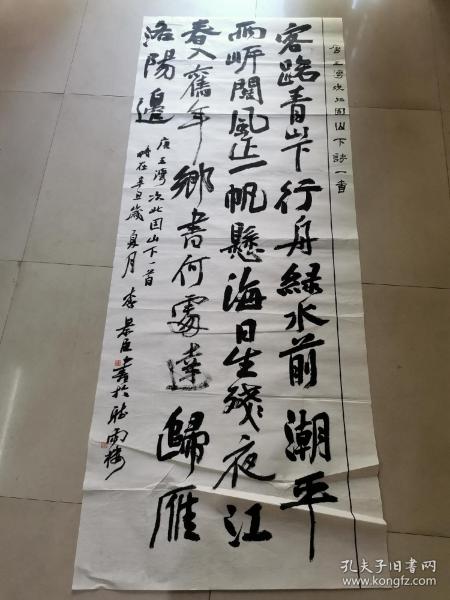 唐王湾次北固山下詩一首
客路青山下行舟緑水前潮平
兩岍闊風正一帆懸海日生殘夜江
春入舊年鄉書何處達歸雁
洛陽邊
唐王灣次北固山下一首
時在辛丑歲夏月李
書於聽雨樓
孔夫子旧书网
www.kongfz.com